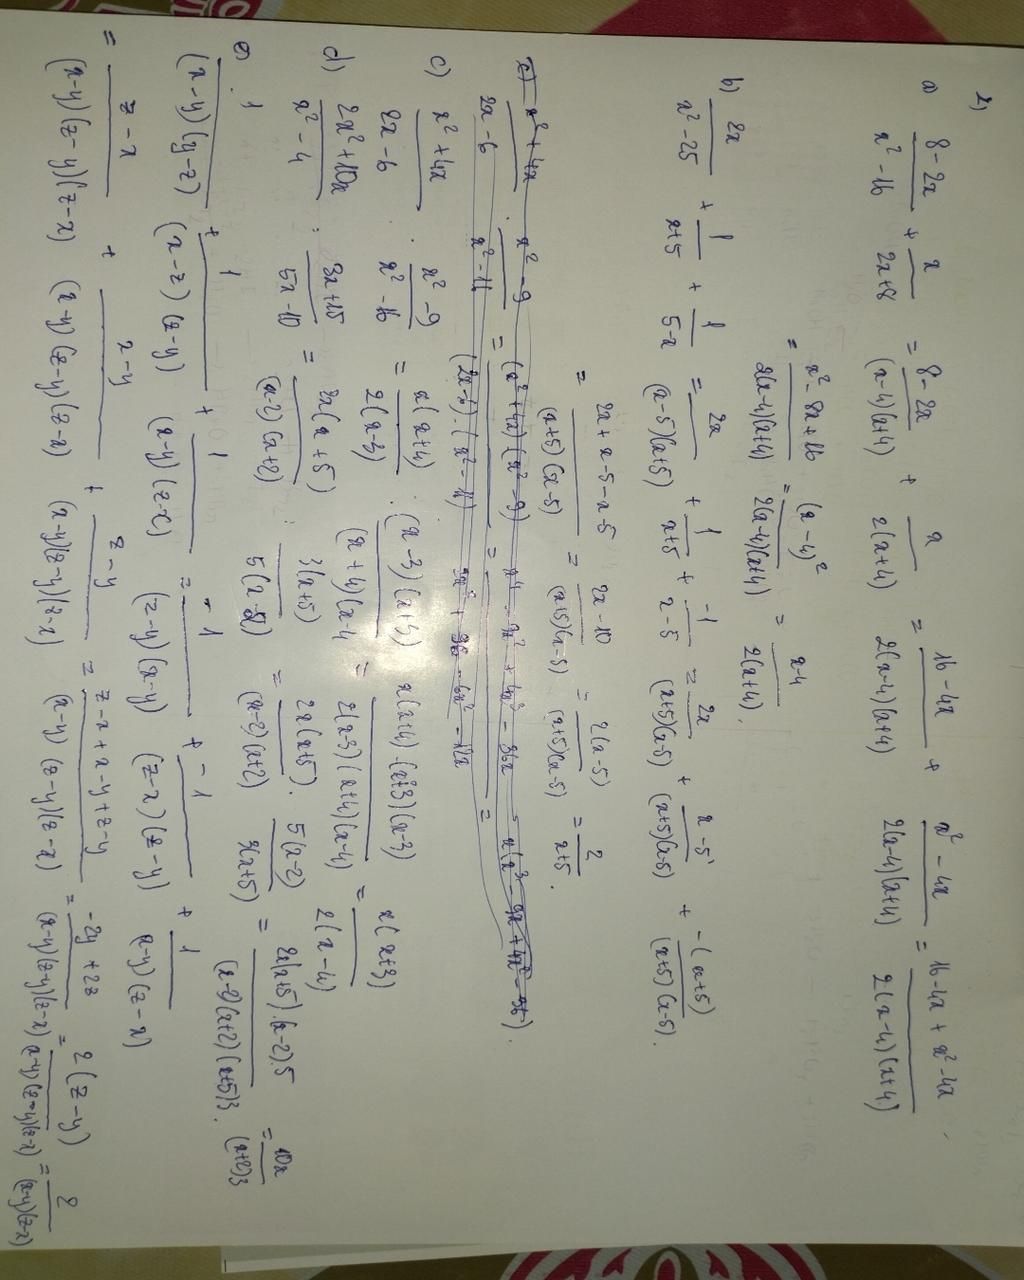 2)
a) \frac{8-2x}{x^2-16} + \frac{x}{2x+8} = \frac{8-2x}{(x-4)(x+4)} + \frac{x}{2(x+4)} = \frac{16-4x}{2(x-4)(x+4)} + \frac{x^2-4x}{2(x-4)(x+4)} = \frac{16-4x+x^2-4x}{2(x-4)(x+4)}
= \frac{x^2-8x+16}{2(x-4)(x+4)} = \frac{(x-4)^2}{2(x-4)(x+4)} = \frac{x-4}{2(x+4)}.
b) \frac{2x}{x^2-25} + \frac{1}{x+5} + \frac{1}{5-x} = \frac{2x}{(x-5)(x+5)} + \frac{1}{x+5} + \frac{-1}{x-5} = \frac{2x}{(x+5)(x-5)} + \frac{x-5}{(x+5)(x-5)} + \frac{-(x+5)}{(x+5)(x-5)}.
= \frac{2x+x-5-x-5}{(x+5)(x-5)} = \frac{2x-10}{(x+5)(x-5)} = \frac{2(x-5)}{(x+5)(x-5)} = \frac{2}{x+5}.
c) \frac{x^2+4x}{2x-6} . \frac{x^2-9}{x^2-16} = \frac{x(x+4)}{2(x-3)} . \frac{(x-3)(x+3)}{(x+4)(x-4} = \frac{x(x+4).(x+3)(x-3)}{2(x-3)(x+4)(x-4)} = \frac{x(x+3)}{2(x-4)}
d) \frac{2x^2+10x}{x^2-4} : \frac{3x+15}{5x-10} = \frac{2x(x+5)}{(x-2)(x+2)} : \frac{3(x+5)}{5(x-2)} = \frac{2x(x+5)}{(x-2)(x+2)} . \frac{5(x-2)}{3(x+5)} = \frac{2x(x+5).(x-2).5}{(x-2)(x+2)(x+5)3} = \frac{10x}{(x+2)3}
e) \frac{1}{(x-y)(y-z)} + \frac{1}{(x-z)(z-y)} + \frac{1}{(x-y)(z-x)} = \frac{-1}{(z-y)(x-y)} + \frac{-1}{(z-x)(z-y)} + \frac{1}{x-y)(z-x)}
= \frac{z-x}{(x-y)(z-y)(z-x)} + \frac{x-y}{(x-y)(z-y)(z-x)} + \frac{z-y}{(x-y)(z-y)(z-x)} = \frac{z-x+x-y+z-y}{(x-y)(z-y)(z-x)} = \frac{-2y+2z}{(x-y)(z-y)(z-x)} = \frac{2(z-y)}{(x-y)(z-y)(z-x)} = \frac{2}{(x-y)(z-x)}